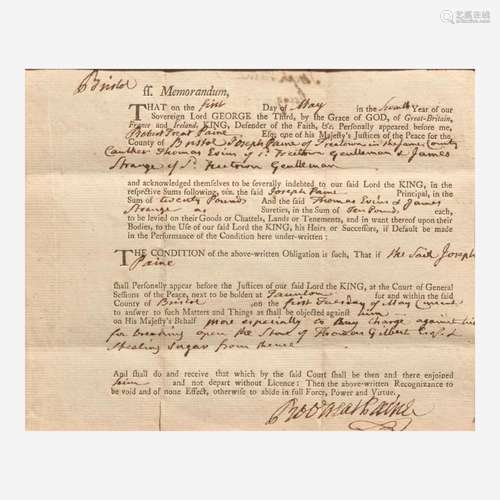 艺狐在线
Bristol ff. Memorandum,
THAT on the first Day of May in the Year of our
Sovereign Lord GEORGE the Third, by the Grace of GOD, of Great-Britain,
France and Ireland, KING, Defender of the Faith, &c. Personally appeared before me,
Robert Treat Paine Esq; one of his Majesty's Justices of the Peace for the
County of Bristol Joseph Paine of Freetown in the same County
Thomas Evins of sd. Freetown Gentleman & James
Strange of sd. Freetown Gentleman
and acknowledged themselves to be severally indebted to our said Lord the KING, in the
respective Sums following, viz. the said Joseph Paine, Principal, in the
Sum of twenty Pounds And the said Thomas Evins & James
Strange as Sureties, in the Sum of Ten Pound, each,
to be levied on their Goods or Chattels, Lands or Tenements, and in want thereof upon their
Bodies, to the Use of our said Lord the KING, his Heirs or Successors, if Default be made
in the Performance of the Condition here under-written:
THE CONDITION of the above-written Obligation is such, That if the said Joseph
Paine
shall Personally appear before the Justices of our said Lord the KING, at the Court of General
Sessions of the Peace, next to be holden at Taunton for and within the said
County of Bristol on the first Tuesday of May Current
to answer to such Matters and Things as shall be objected against him
on His Majesty's Behalf more especially to the charge against him
for breaking open the Store of Gilbert Esq. &
stealing Sugar from thence
And shall do and receive that which by the said Court shall be then and there enjoined
him and not depart without Licence: Then the above-written Recognizance to
be void and of none Effect, otherwise to abide in full Force, Power and Virtue.
Rob Treat Paine